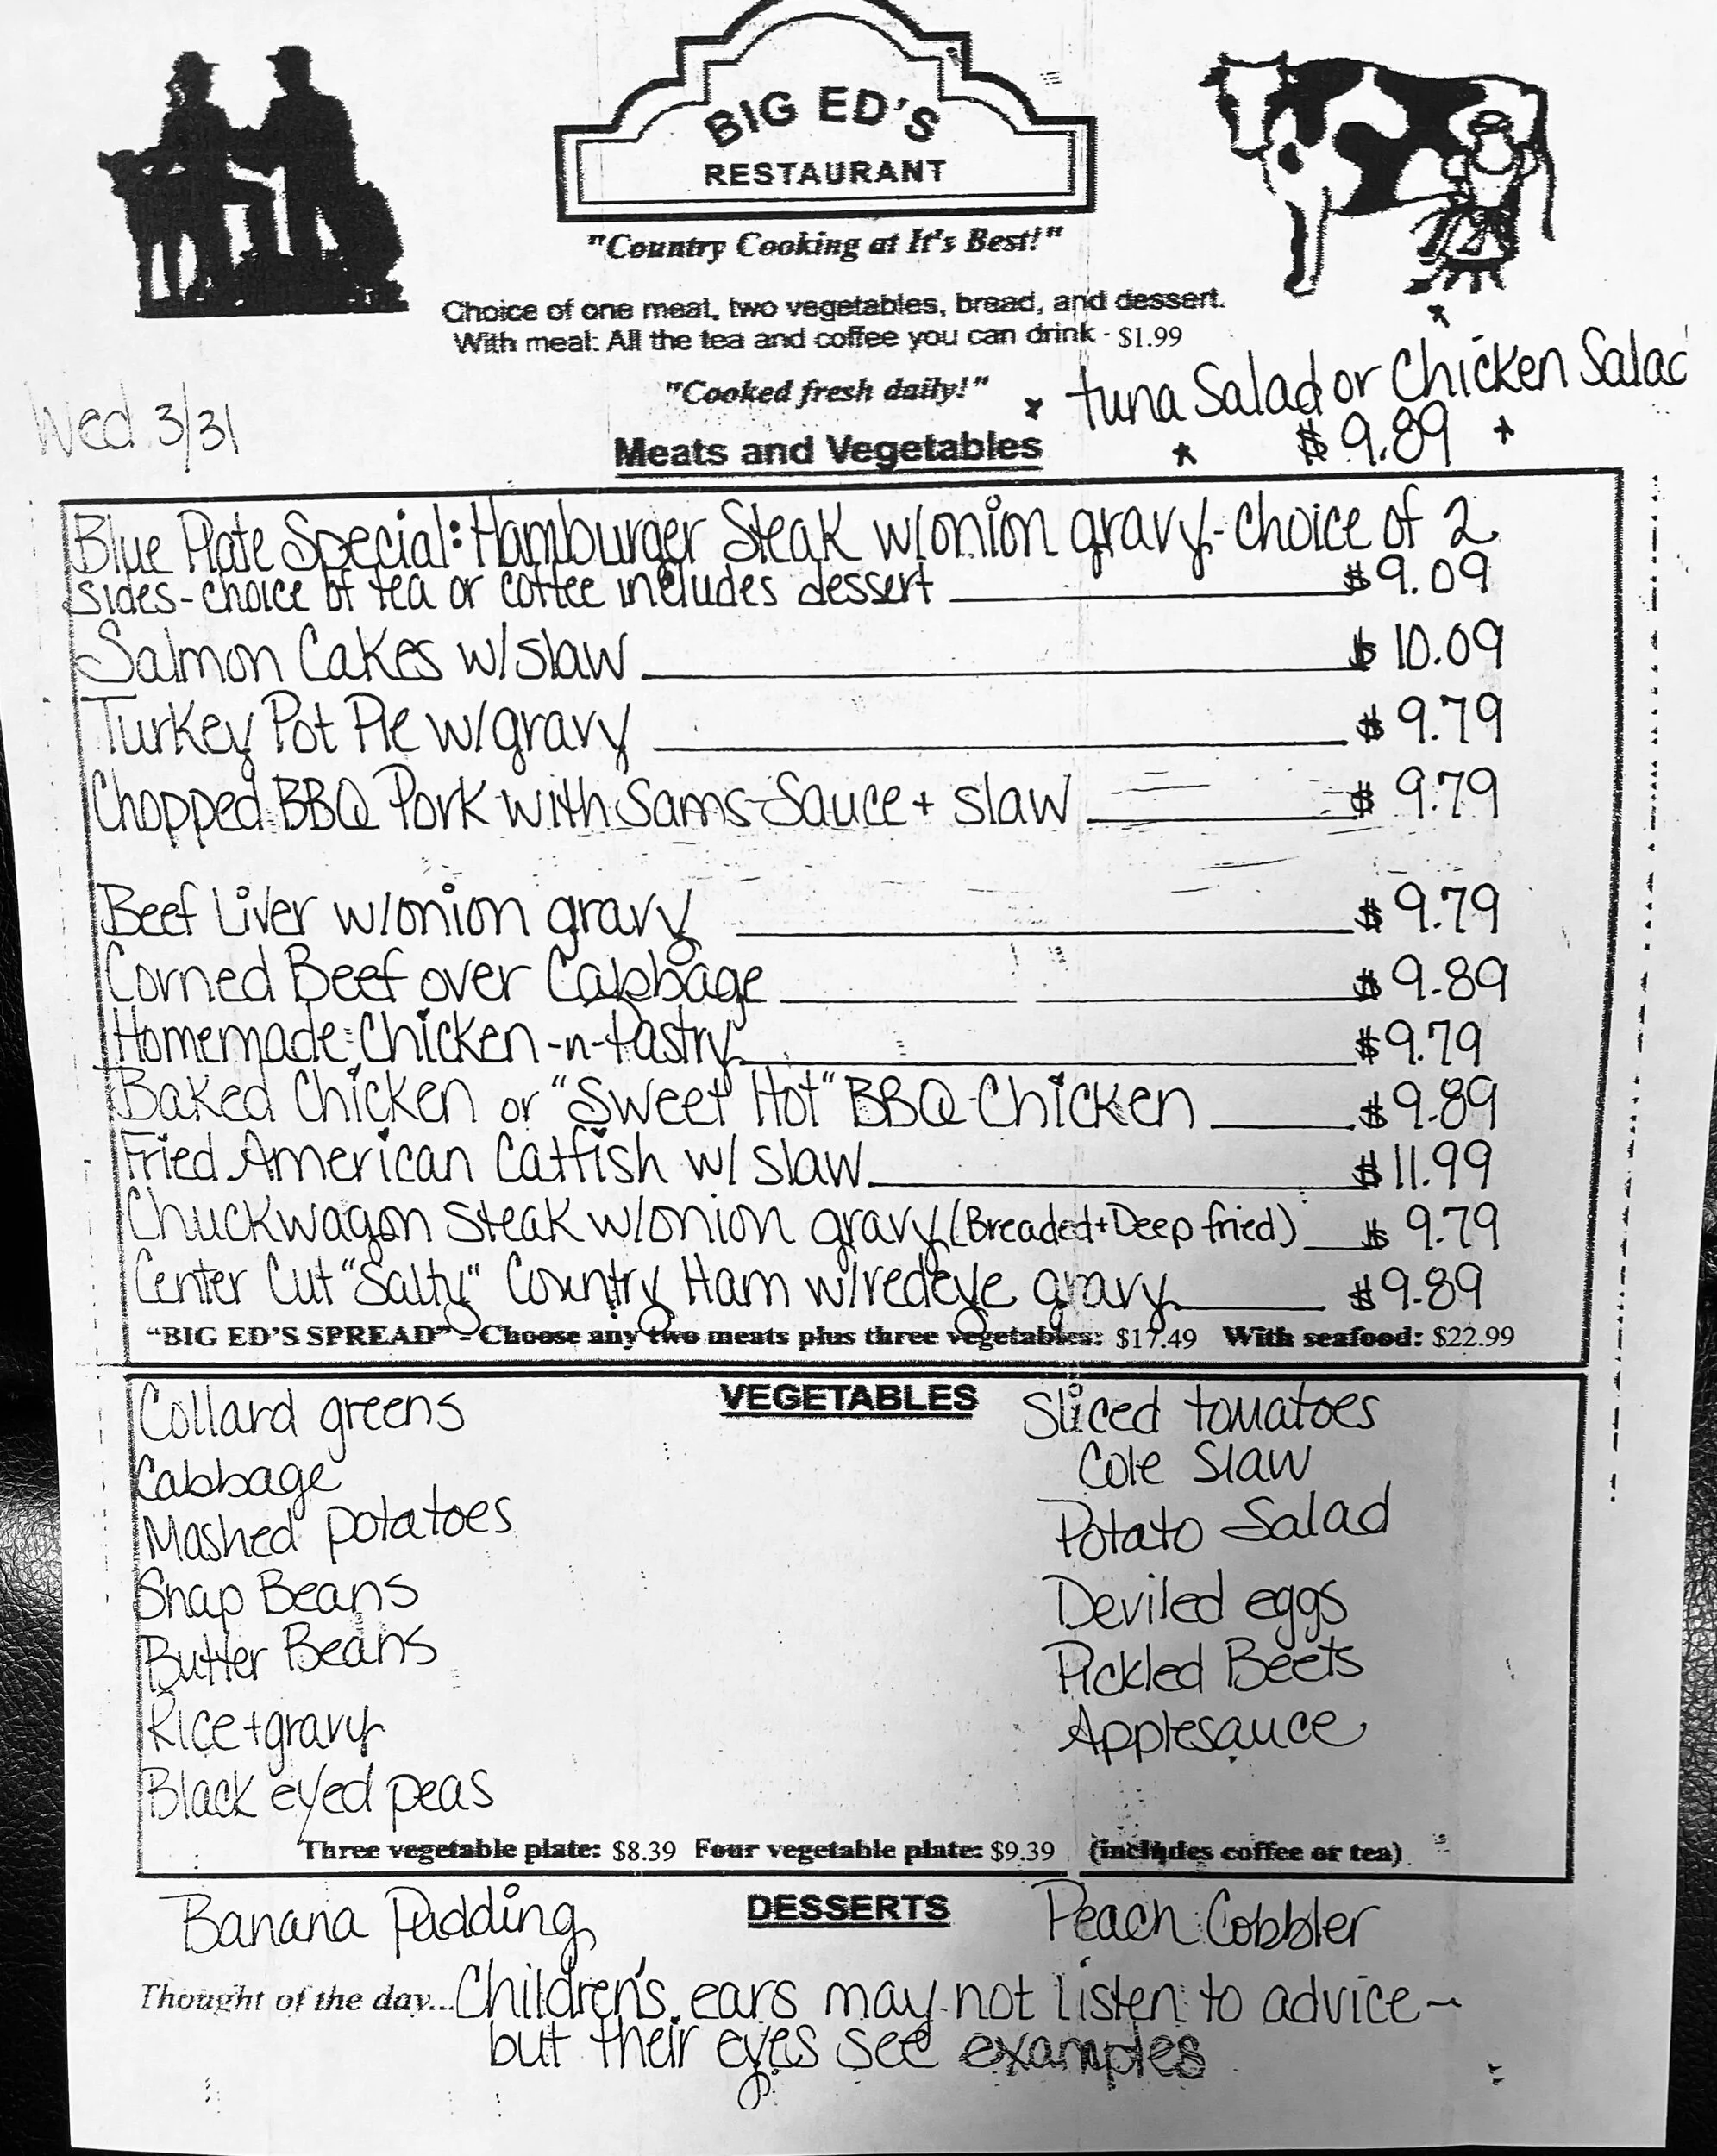 BIG ED'S
RESTAURANT
"Country Cooking at It's Best!"
Choice of one meat, two vegetables, bread, and dessert.
With meal: All the tea and coffee you can drink - $1.99
"Cooked fresh daily!"
tuna Salad or Chicken Salad
$9.89
Wed 3/31
Meats and Vegetables
Blue Plate Special: Hamburger Steak w/onion gravy - choice of 2
sides - choice of tea or coffee includes dessert $9.09
Salmon Cakes w/slaw $10.09
Turkey Pot Pie w/gravy $9.79
Chopped BBQ Pork with Sams Sauce + slaw $9.79
Beef Liver w/onion gravy $9.79
Corned Beef over Cabbage $9.89
Homemade Chicken-n-Pastry $9.79
Baked Chicken or "Sweet Hot" BBQ Chicken $9.89
Fried American Catfish w/ slaw $11.99
Chuckwagon Steak w/onion gravy (Breaded + Deep fried) $9.79
Center Cut "Salty" Country Ham w/redeye gravy $9.89
"BIG ED'S SPREAD" - Choose any two meats plus three vegetables: $17.49 With seafood: $22.99
VEGETABLES
Collard greens
Cabbage
Mashed potatoes
Snap Beans
Butter Beans
Rice + gravy
Black eyed peas
Sliced tomatoes
Cole Slaw
Potato Salad
Deviled eggs
Pickled Beets
Applesauce
Three vegetable plate: $8.39 Four vegetable plate: $9.39 (includes coffee or tea)
DESSERTS
Banana Pudding
Peach Cobbler
Thought of the day... Children's ears may not listen to advice -
but their eyes see examples